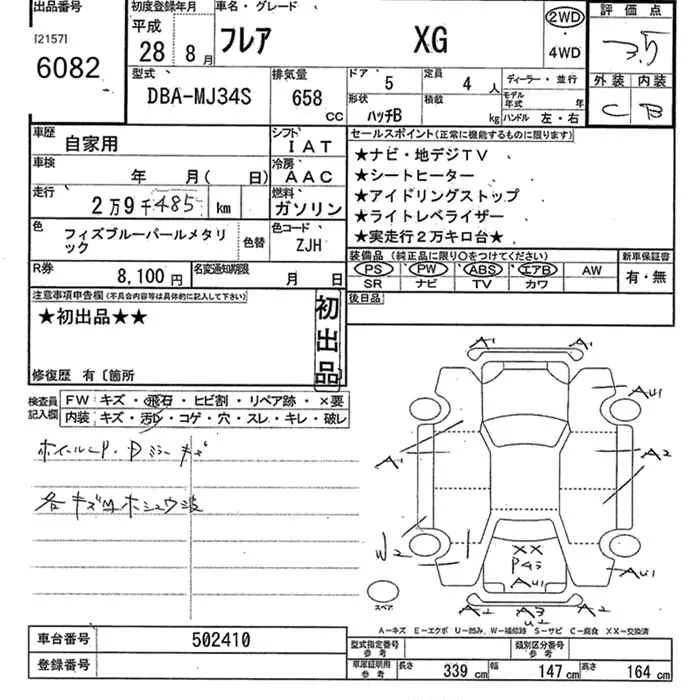 出品番号 初度登録年月 車名・グレード 評価点
[2157] 平成
6082 28 8月 フレア XG 2WD・4WD 3.5
型式 排気量 ドア 5 定員 4人 ディーラー・並行 外装 内装
DBA-MJ34S 658 CC 形状 ハッチB 積載 kg モデル年式 年 ハンドル 左・右 C B
車歴 自家用 シフト IAT セールスポイント(正常に機能するものに限ります)
車検 年 月( 日) 冷房 AAC ★ナビ・地デジTV
★シートヒーター
走行 2万9千485 km 燃料 ガソリン ★アイドリングストップ
★ライトレベライザー
★実走行2万キロ台★
色 フィズブルーパールメタリック 色替 色コード ZJH
装備品(純正品に限り○をつけてください) 新車保証書
PS PW ABS エアB AW 有・無
SR ナビ TV カワ
R券 8,100円 名変通知期限 月 日
後日品
注意事項申告欄(不具合内容等は具体的に記入して下さい)
★初出品★★ 初出品
修復歴 有〔箇所
検査員記入欄 FW キズ・飛石・ヒビ割・リペア跡・×要
内装 キズ・汚レ・コゲ・穴・スレ・キレ・破レ
ホイールCP・Dミラーキズ
各キズ凹ホシュウ波
A1 A1
AU1
A1 A2
W2
XX
Pキズ
AU1 AU1
A2 A3 A2
U2
スペア
A-キズ E-エクボ U-凹み、W-補修跡 S-サビ C-腐食 XX-交換済
車台番号 502410 型式指定番号参考 類別区分番号参考
登録番号 車庫証明用参考 長さ 339cm 幅 147cm 高さ 164cm